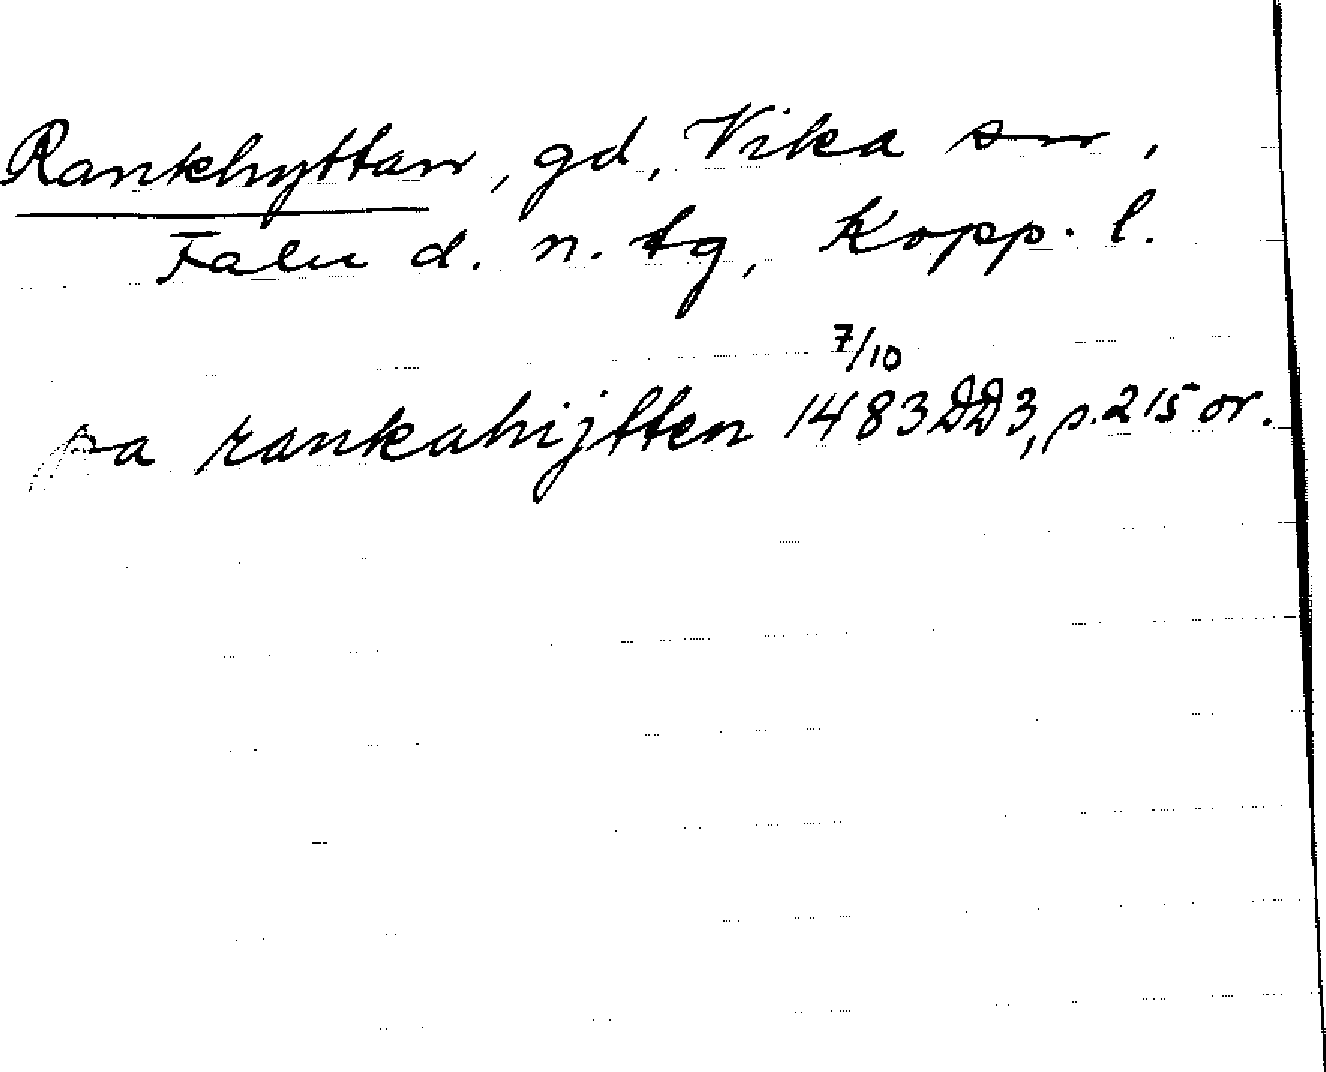 Rankhyttan, gd, Vika sn,
Falu d. n. tg, Kopp. l.
7/10
pa rankahijtten 1483 DD3, s. 215 or.